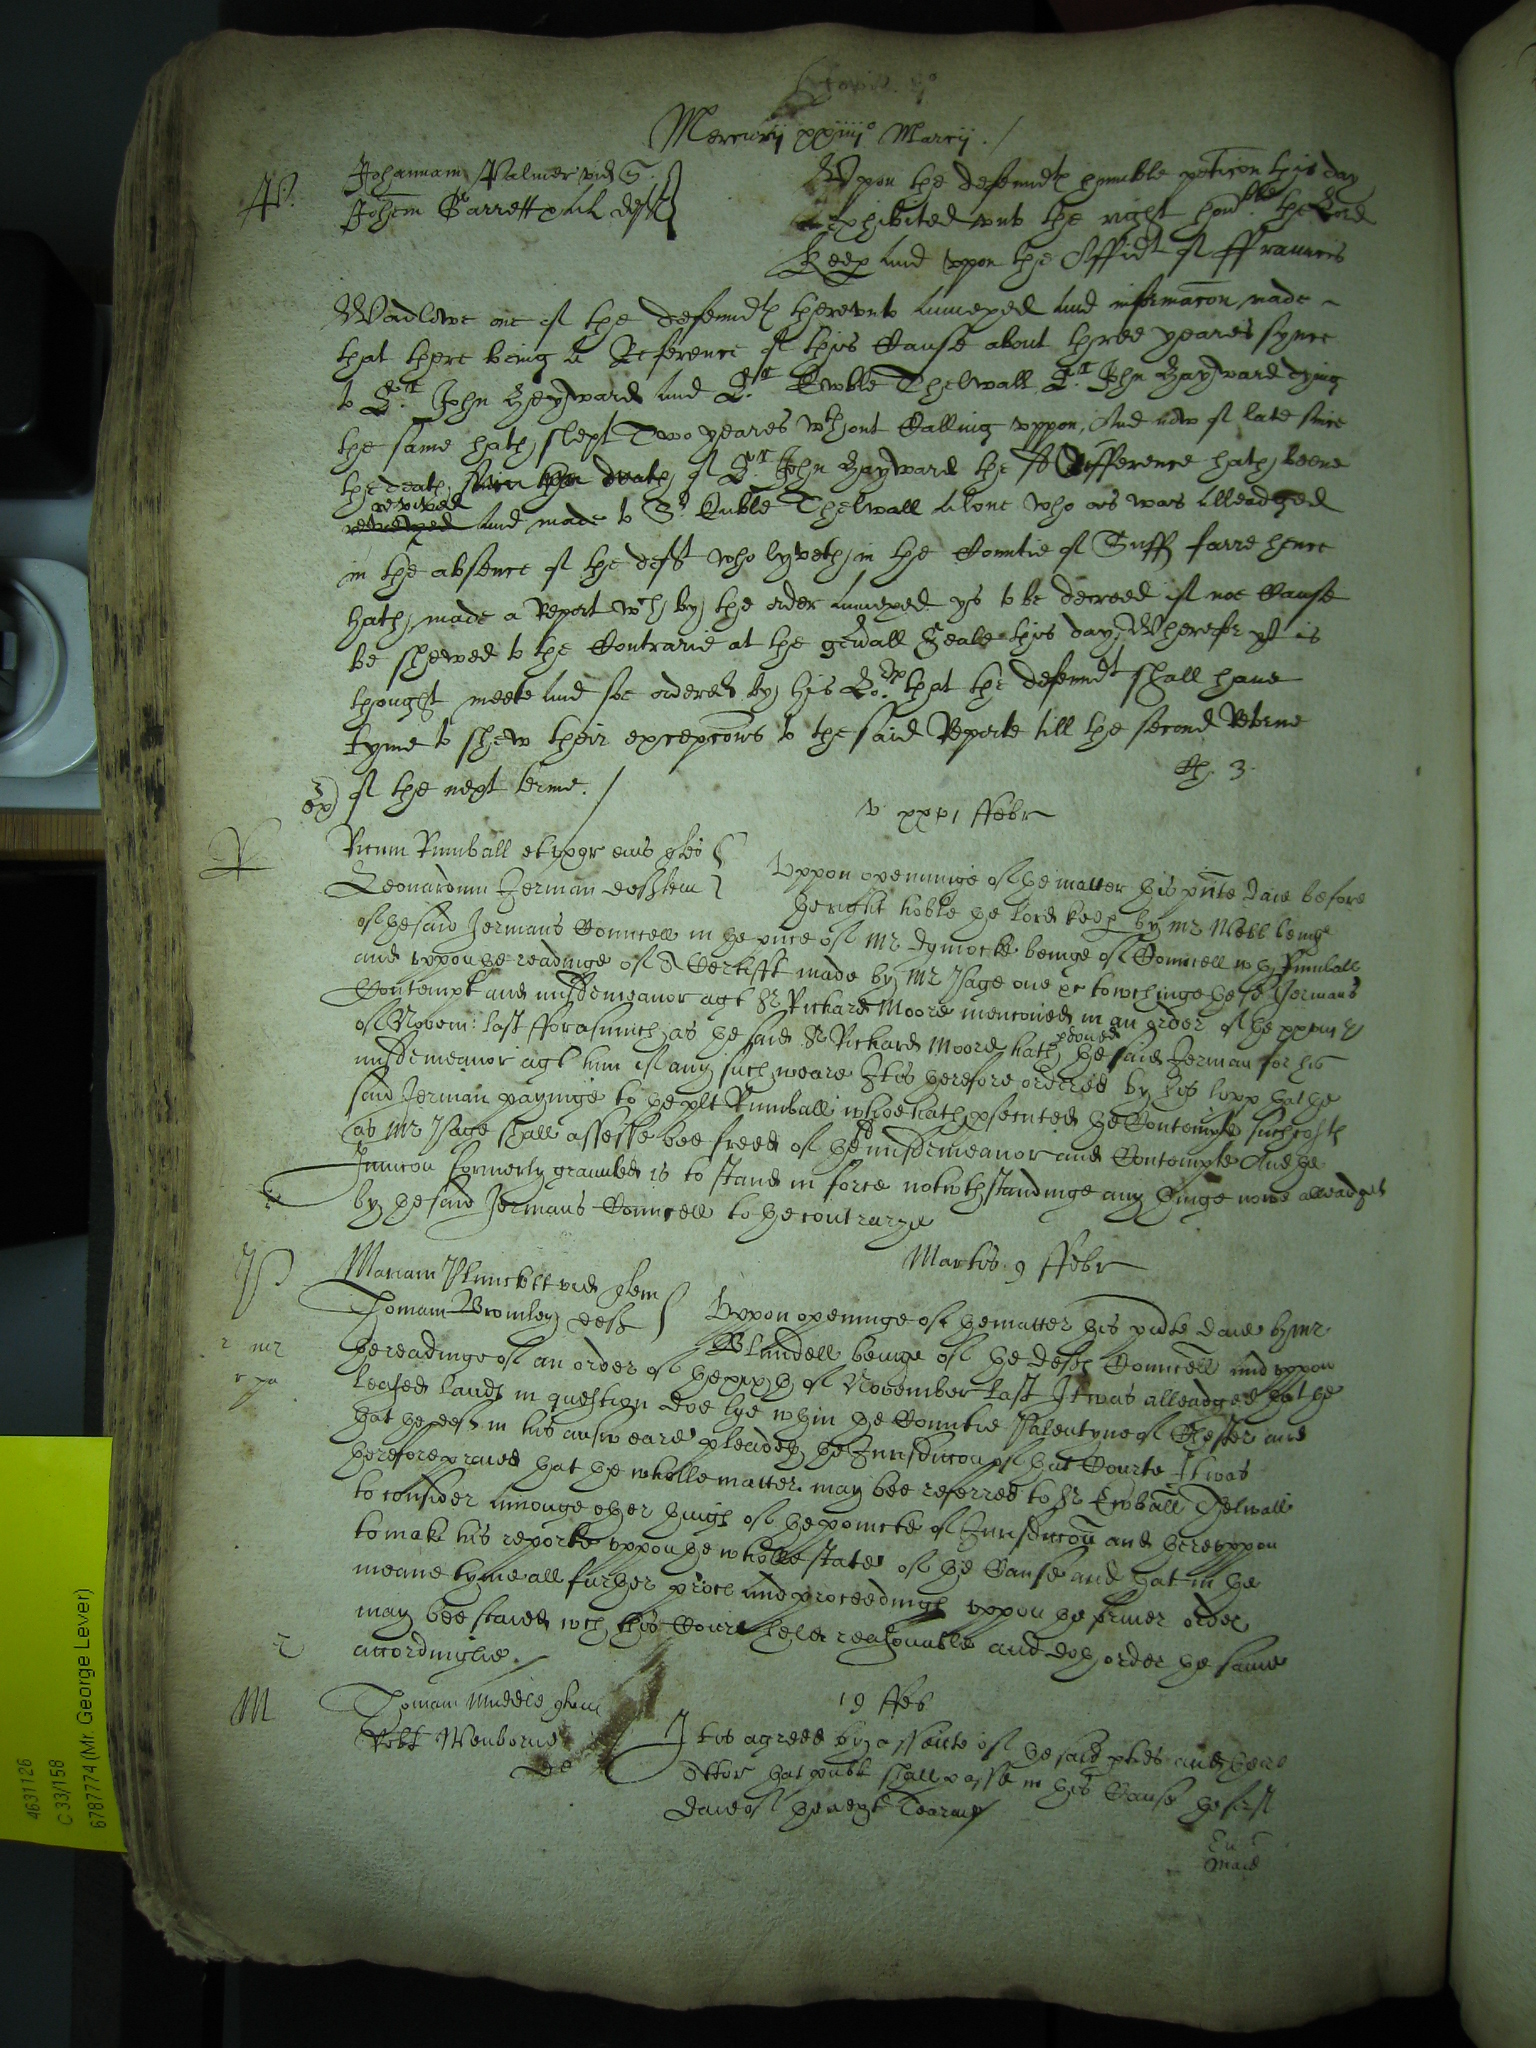 Mercurij xxiiij° Marcij ./
P.
Johannam Palmer vid Q.
Johem Garrett & al deftes
Uppon the defendtes humble peticon this day
exhibited unto the right honble the Lord
Keep and uppon the Affidt of ffrauncis
Wadlowe one of the defendtes thereunto annexed and informacon made
that there being a Reference of this Cause about three yeares synce
to Sr John Heyward and Sr Euble Thelwall Sr John Hayward dying
the same hath slept Two yeares wthout Calling uppon, And now of late since
the death since the death of Sr John Hayward the sd Difference hath beene
revived
and made to Sr Euble Thelwall alone who as was alleadged
in the absence of the deft who lyveth in the Countie of Suff farre hence
hath made a Report wch by the order annexed ys to be decreed if noe Cause
be shewed to the Contrarie at the gen'all Seale this day, Wherefore yt is
thought meete and soe ordered by his Lo:pp that the defendt shall have
tyme to shew their excepcons to the said Reporte till the second Retorne
of the next terme ./
ex)
v xxvi ffebr
R
Ricum Rumball et uxor eius qtes
Leonardum Jerman defttem
Uppon openninge of the matter this p'nte daie before
the right hoble the Lord keep by Mr Webb beinge
of the said Jermans Councell in the p'nce of Mr Dymocke beinge of Councell wth Rumball
and uppon the readinge of A Certifft made by Mr Page one &c towchinge the sd Jermans
Contempt and misdemeanor agt Sr Richard Moore menconed in an order of the
of Novem: last fforasmuch as the said Sr Richard Moore hath the said Jerman for his
misdemeanor agt him if any such weare It is therefore ordered by his Lopp that the
said Jerman payinge to the plt Rumball whoe hath p'secuted the Contempte such costes
as Mr Page shall assesse bee freed of the sd misdemeanor and Contempte And the
Iniuncon formerly graunted is to stand in force notwthstandinge any thinge nowe alleadged
by the said Jermans Councell to the contrarye
Martis 9 ffebr
P
Mariam Plunckett vid qtem
Thomam Bromley deft
Uppon openinge of the matter this p'nte daie by Mr
Blundell beinge of the deftes Councell and uppon
the readinge of an order of the of November last It was alleadged that the
leased landes in question doe lye wthin the Countie Palentyne of Chester and
that the deft in his answeare pleaded the Jurisdiccon of that Courte It was
therefore praied that the wholle matter may bee referred to Sr Ewball Thelwall
to consider amonge other thinges of the poincte of Jurisdiccon and thereuppon
to make his reporte uppon the wholle state of the Cause and that in the
meane tyme all further proces and proceedinges uppon the former order
may bee staied wch this Court held reasonable and doth order the same
accordinglie ./
19 ffeb
M
Thomam Muddle qtem
Robt Wenborne
de
It is agreed by assente of the said pties and their
Attor that publ shall passe in this Cause the first
daie of the next Tearme /
4631126
C 33/158
6787774 (Mr. George Lever)